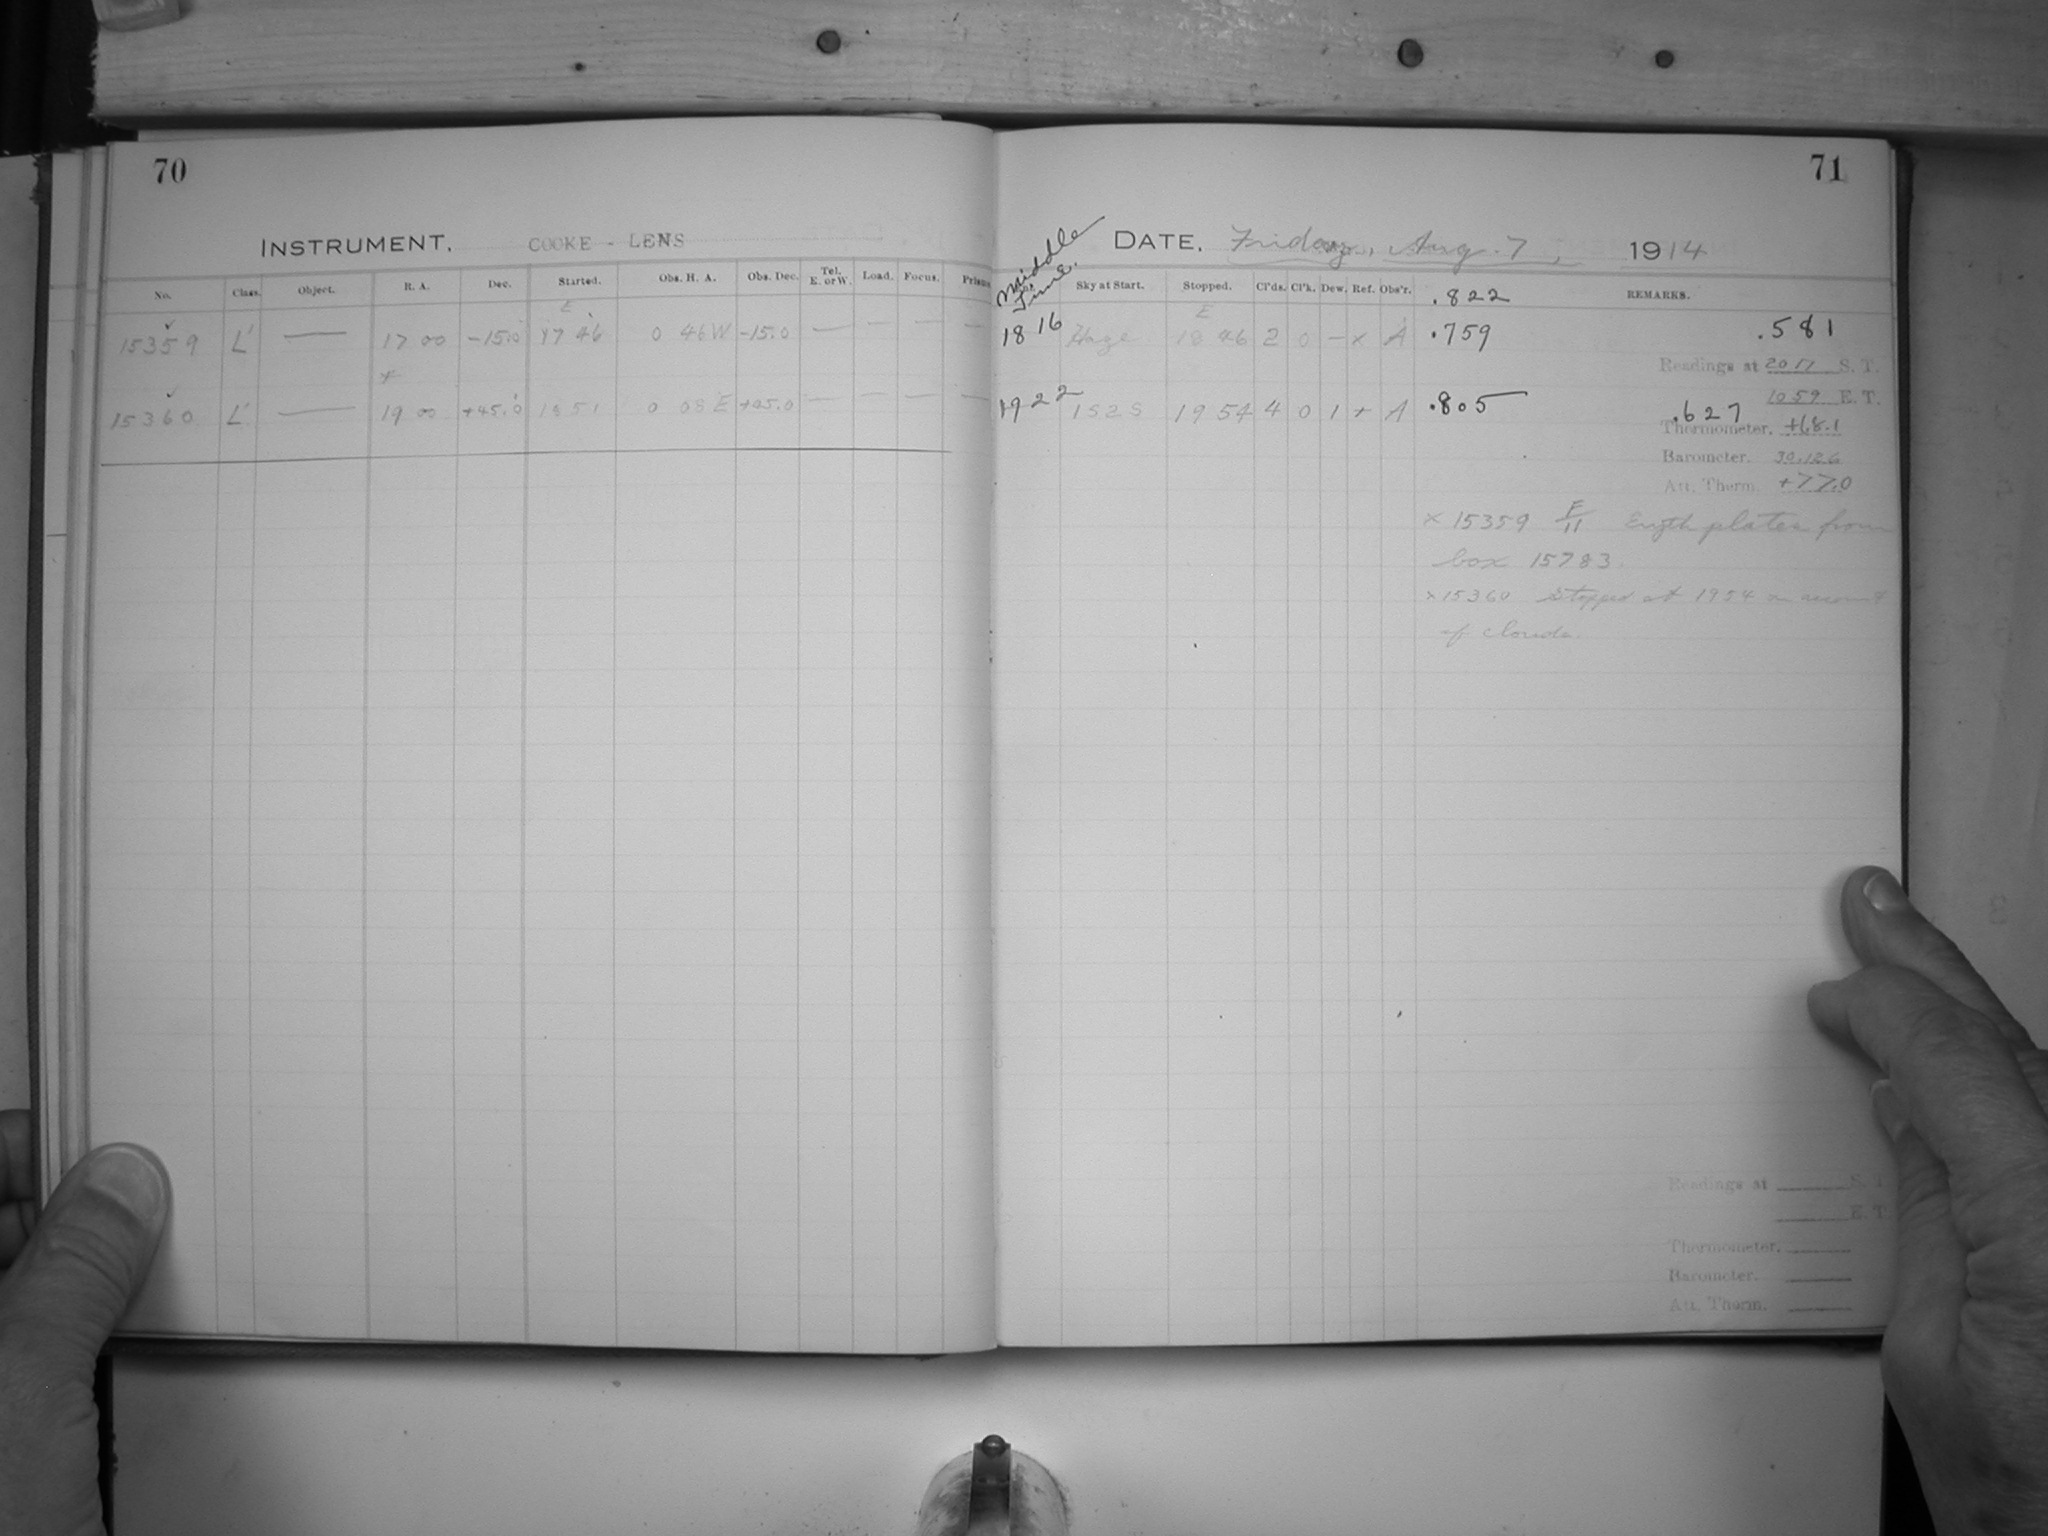 70
71
INSTRUMENT. COOKE - LENS
Middle Time.
DATE. Friday, Aug. 7, 1914
No. Class. Object. R. A. Dec. Started. Obs. H. A. Obs. Dec. Tel. E. or W. Load. Focus. Prism
Sky at Start. Stopped. Cl'ds. Cl'k. Dew. Ref. Obs'r. .822 REMARKS.
E E
15359 L' — 17 00 -15.0 17 46 0 46 W -15.0 — — — —
18 16 Haze 18 46 2 0 - x A .759 .581
Readings at 2017 S. T.
15360 L' — 19 00 +45.0 1851 0 08 E +45.0 — — — —
1922 1525 1954 4 0 1 + A .805 .627
1059 E. T.
Thermometer. +68.1
Barometer. 30.126
Att. Therm. +77.0
x 15359 F/11 plates from
box 15783.
x 15360 Stopped at 1954 on account
of clouds.
Readings at S. T.
E. T.
Thermometer.
Barometer.
Att. Therm.